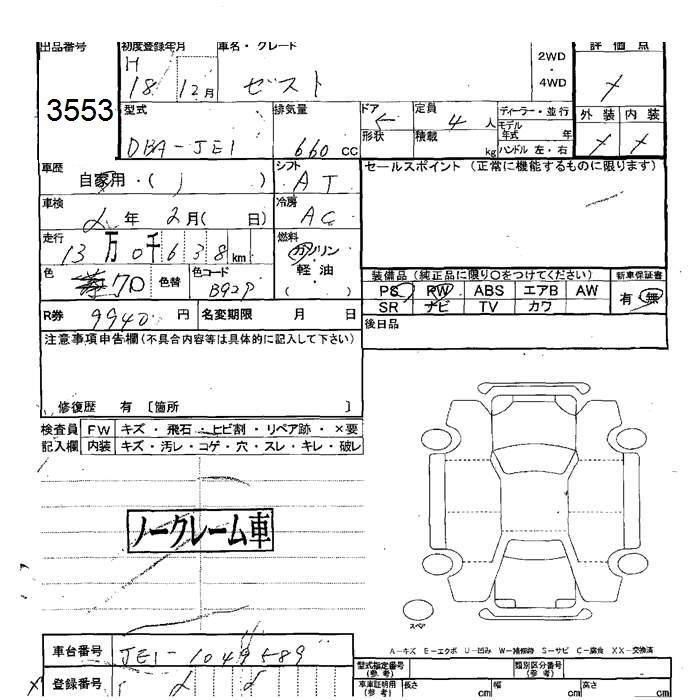 出品番号 初度登録年月 車名・グレード 評価点
H
18 12月 ゼスト
2WD
・
4WD
3553
型式 排気量 ドア 定員 ディーラー・並行 外装 内装
DBA-JE1 660 cc 形状 積載 4人 kg
モデル年式 年
ハンドル 左・右
車歴 自家用・( ) シフト AT セールスポイント (正常に機能するものに限ります)
車検 年 2月( 日) 冷房 AC
走行 13万0千638km 燃料 ガソリン・軽油・( )
色 70 色替 色コード B92P
装備品 (純正品に限り○をつけてください) 新車保証書
PS RW ABS エアB AW 有・無
SR ナビ TV カワ
R券 9940 円 名変期限 月 日 後日品
注意事項申告欄(不具合内容等は具体的に記入して下さい)
修復歴 有 〔箇所 〕
検査員 FW キズ・飛石・ヒビ割・リペア跡・×要
記入欄 内装 キズ・汚レ・コゲ・穴・スレ・キレ・破レ
ノークレーム車
スペア
A-キズ E-エクボ U-凹み W-補修跡 S-サビ C-腐食 XX-交換済
車台番号 JE1-1049589
登録番号
型式指定番号(参考) 類別区分番号(参考)
車庫証明用(参考) 長さ cm 幅 cm 高さ cm